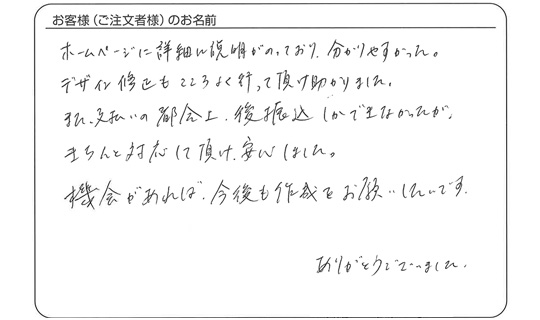 お客様（ご注文者様）のお名前
ホームページに詳細に説明がのっており、分かりやすかった。
デザイン修正もこころよく行って頂け助かりました。
また、支払いの都合上、後振込しかできなかったが、
きちんと対応して頂け、安心しました。
機会があれば、今後も作成をお願いしたいです。
ありがとうございました。